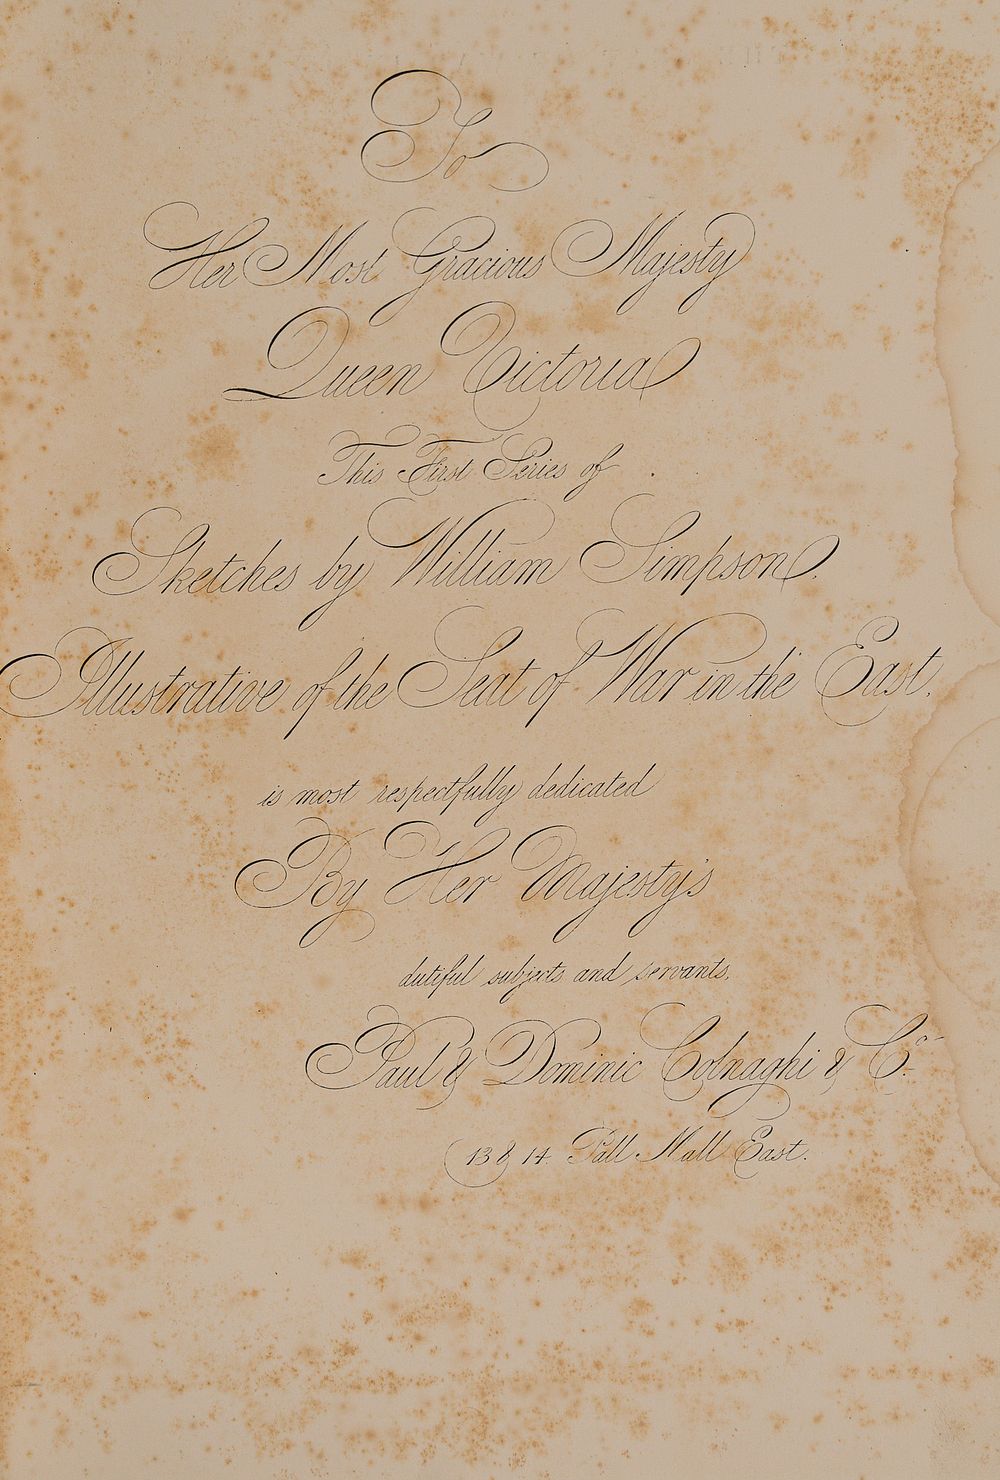 To
Her Most Gracious Majesty
Queen Victoria
This First Series of
Sketches by William Simpson.
Illustrative of the Seat of War in the East.
is most respectfully dedicated
By Her Majesty's
dutiful subjects and servants.
Paul & Dominic Colnaghi & Co.
13 & 14 Pall Mall East.